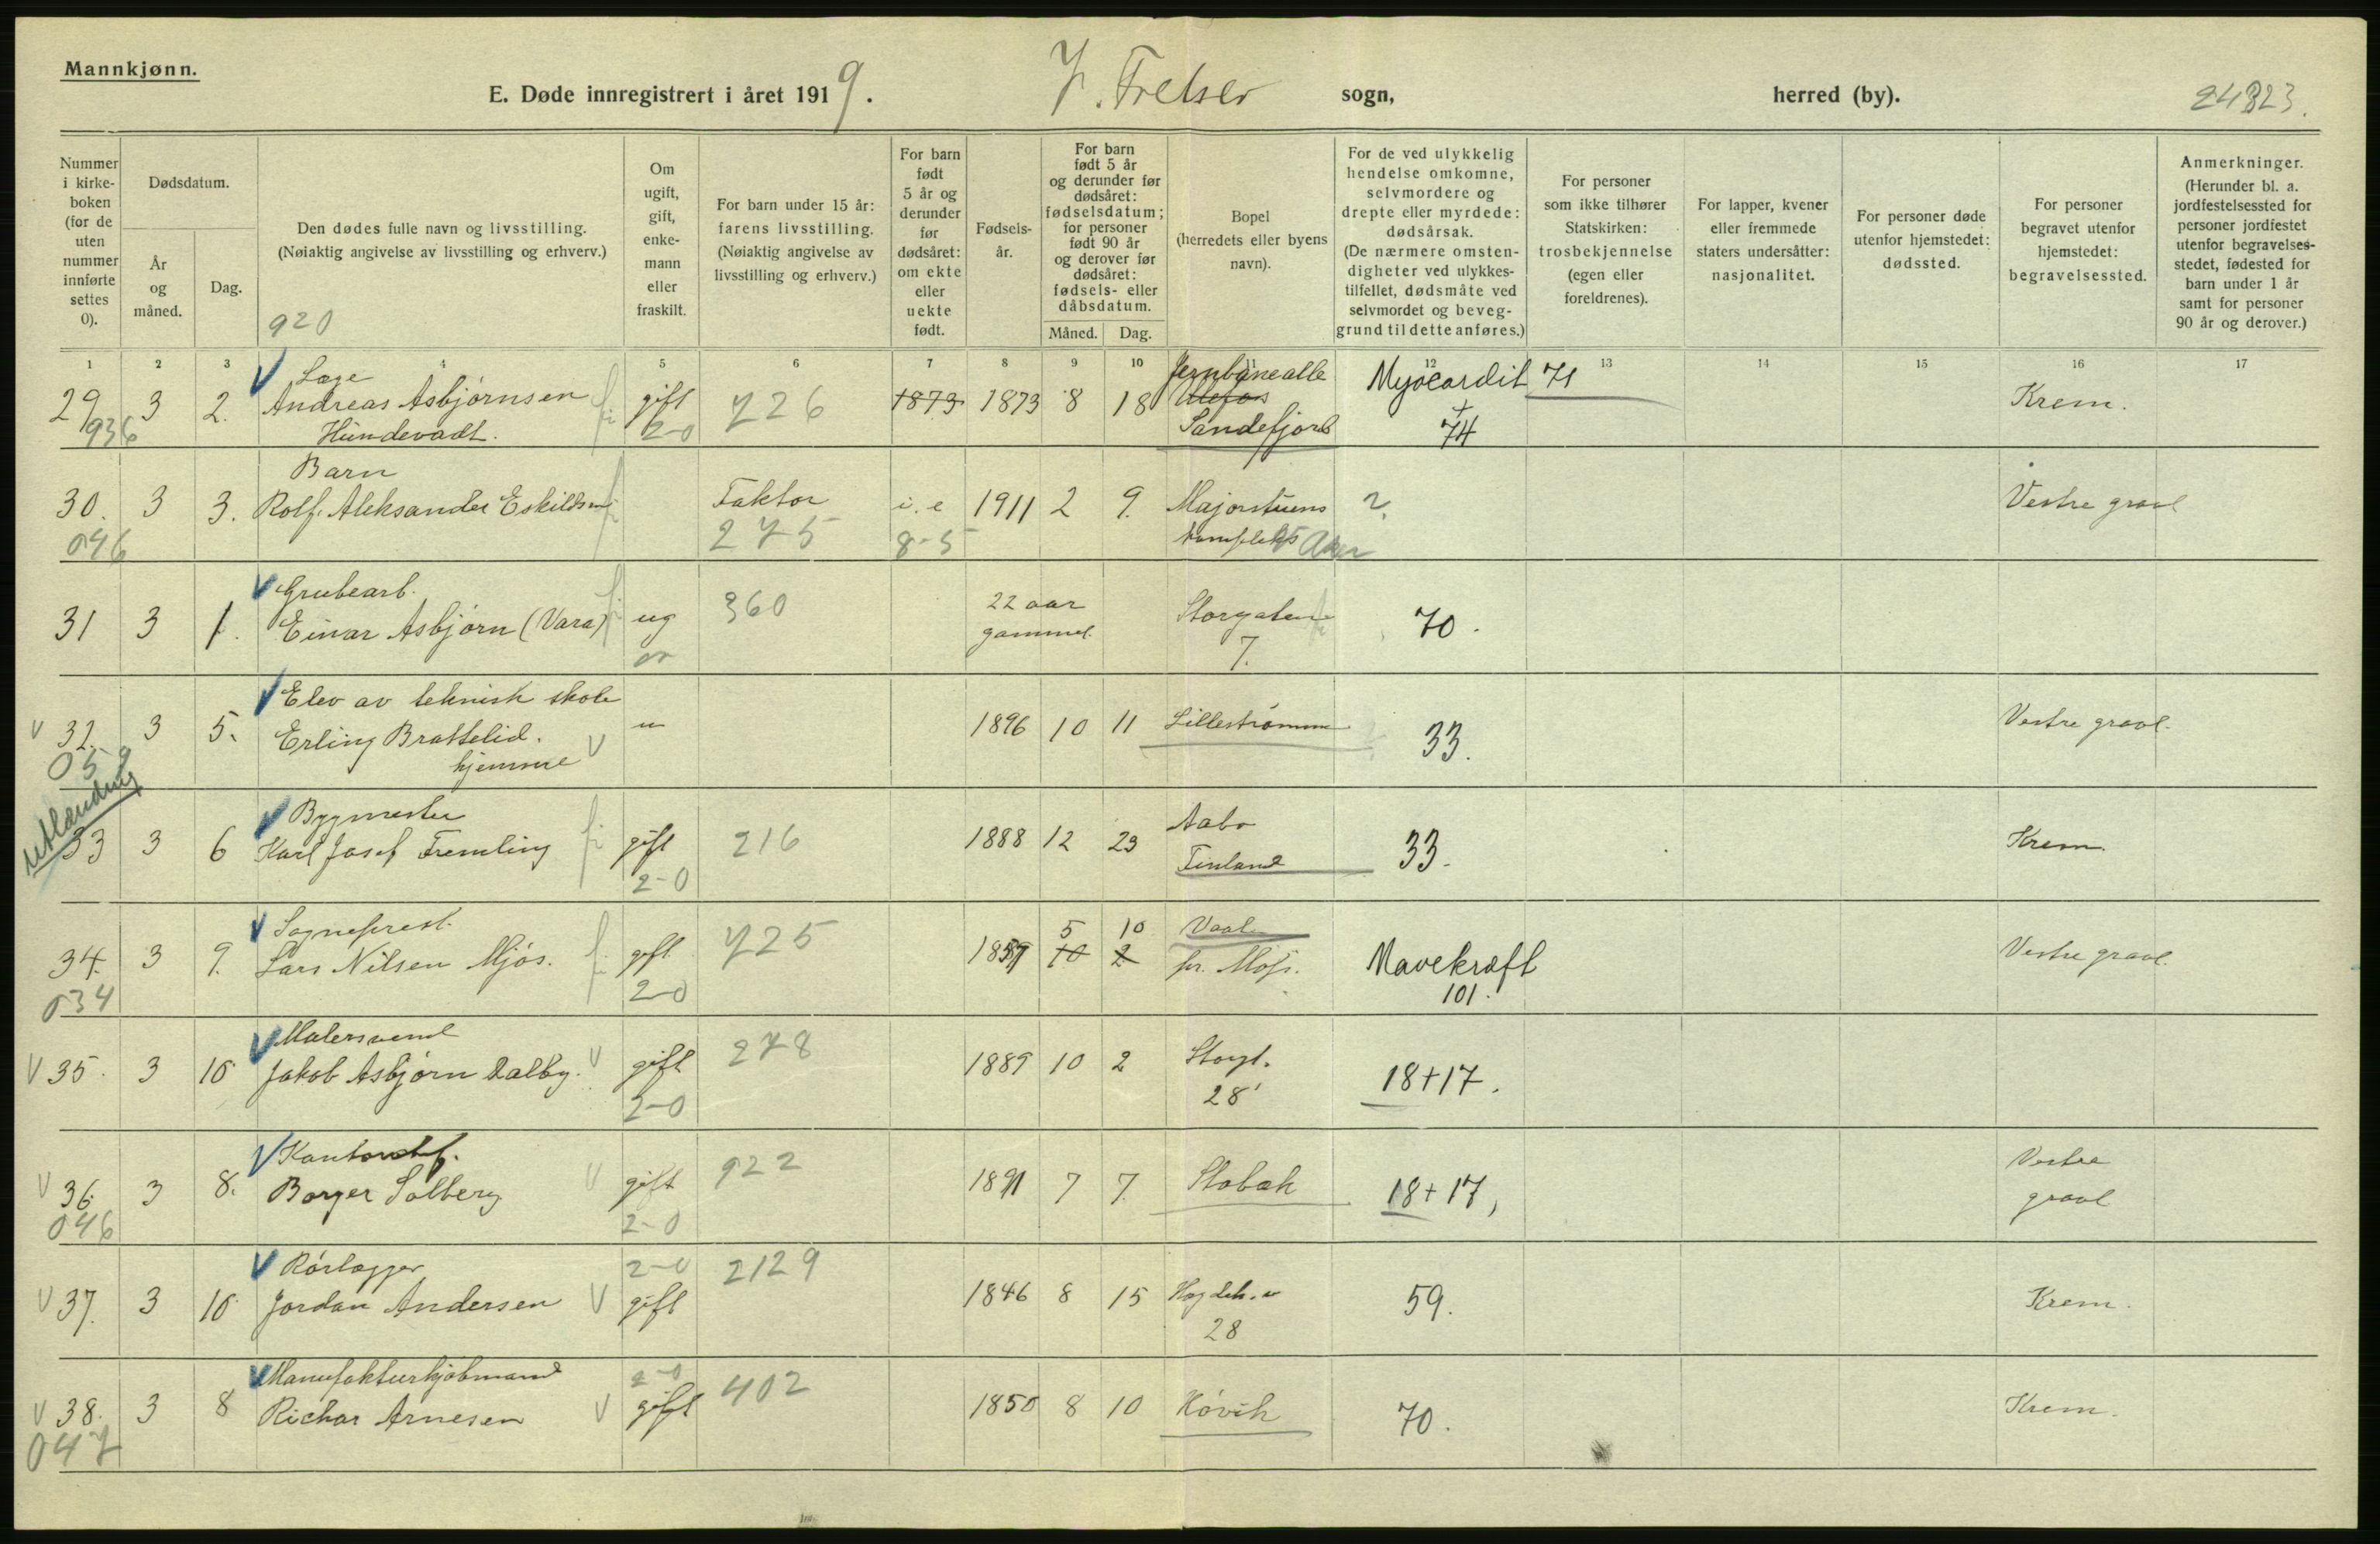 Mannkjønn.
E. Døde innregistrert i året 1919. V. Frelser sogn, herred (by). 24823.
Nummer i kirke-boken (for de uten nummer innførte settes 0).
Dødsdatum.
År og måned.
Dag.
Den dødes fulle navn og livsstilling.
(Nøiaktig angivelse av livsstilling og erhverv.)
920
Om ugift, gift, enke-mann eller fraskilt.
For barn under 15 år: farens livsstilling.
(Nøiaktig angivelse av livsstilling og erhverv.)
For barn født 5 år og derunder før dødsåret: om ekte eller uekte født.
Fødsels-år.
For barn født 5 år og derunder før dødsåret: fødselsdatum; for personer født 90 år og derover før dødsåret: fødsels- eller dåbsdatum.
Måned. Dag.
Bopel (herredets eller byens navn).
For de ved ulykkelig hendelse omkomne, selvmordere og drepte eller myrdede: dødsårsak.
(De nærmere omsten-digheter ved ulykkes-tilfellet, dødsmåte ved selvmordet og beveg-grund til dette anføres.)
For personer som ikke tilhører Statskirken: trosbekjennelse (egen eller foreldrenes).
For lapper, kvener eller fremmede staters undersåtter: nasjonalitet.
For personer døde utenfor hjemstedet: dødssted.
For personer begravet utenfor hjemstedet: begravelsessted.
Anmerkninger.
(Herunder bl. a. jordfestelsessted for personer jordfestet utenfor begravelses-stedet, fødested for barn under 1 år samt for personer 90 år og derover.)
1 2 3 4 5 6 7 8 9 10 11 12 13 14 15 16 17
Læge Jernbanealle
29 3 2. Andreas Asbjørnsen gift 726 1873 1873 8 18 Ulefos Myocardit 71 Krem.
936 Hundevadt. 2-0 Sandefjord + 74
Barn
30. 3 3. Rolf Aleksander Eskildsen Faktor i.e 1911 2 9. Majorstuens 2. Vestre gravl
046 275 8-5 kompleks V Aker
Grubearb.
31 3 1. Einar Asbjørn (Vara) ug 360 22 aar gammel. Storgaten 7. 70.
Elev av teknisk skole
V 32. 3 5. Erling Brattelid. u 1896 10 11 Lillestrømmen 33. Vestre gravl.
05 9 hjemme V
utlænding
Bygmester
33 3 6 Karl Josef Fremling gift 216 1888 12 23 Aabo 33. Krem.
2-0 Finland
Sogneprest.
34. 3 9. Lars Nilsen Mjøs. gift 725 1857 5 10 Vaaler Mavekræft Vestre gravl.
034 2-0 10 2 pr. Moss. 101.
Malersvend
V 35. 3 10 Jakob Asbjørn Dalby. V gift 278 1889 10 2 Storgt. 18+17.
2-0 28
Kontorchef.
V 36. 3 8. Borger Solberg V gift 922 1891 7 7. Stabæk 18+17, Vestre
046 2-0 gravl
Rørlægger 2-0 2129
V 37. 3 10 Jordan Andersen V gift 1846 8 15 Hegdeh.v 59. Krem.
28
Manufakturkjøbmand 2-0 402
V 38. 3 8 Richar Arnesen V gift 1850 8 10 Høvik 70. Krem.
047